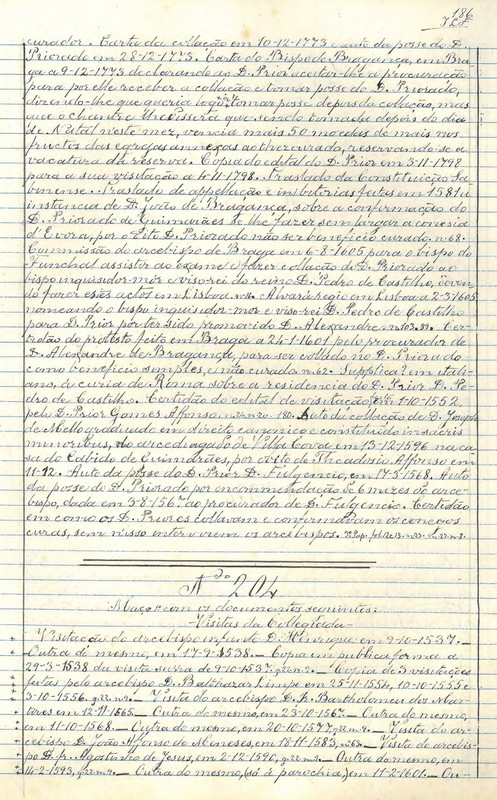 186
curador. Carta da collação em 10-12-1773 e auto da posse do D.
Priorado em 28-12-1773. Carta do Bispo de Bragança, em Bra-
ga a 9-12-1773 declarando ao D. Prior acceitar-lhe a procuração
para por elle receber a collação e tomar posse do D. Priorado,
dizendo-lhe que queria logo tomar posse depois da collação, mas
que o Chantre lhe dissera que sendo tomada depois do dia
de Natal neste mez, vencia mais 50 moedas de mais nos
fructos das egrejas annexas ao thezourado, reservando-se a
vacatura da reserva. Copia do edital do D. Prior em 3-11-1798
para a sua visitação a 4-11-1798. Traslado da Constituição Sa-
binense. Traslado de appellação e inibitorias feitas em 1581 á
instancia de D. João de Bragança, sobre a confirmação do
D. Priorado de Guimarães e lhe fazer sem largar a conesia
d'Evora, por o dito D. Priorado não ser beneficio curado. n. 68.
Commissão do arcebispo de Braga em 6-8-1605 para o bispo do
Funchal assistir ao exame e fazer collação do D. Priorado ao
bispo inquisidor-mór e viso-rei do reino D. Pedro de Castilho, deven-
do fazer estes actos em Lisboa. Alvará regio em Lisboa a 2-3-1605
nomeando o bispo inquisidor-mór e viso-rei D. Pedro de Castilho
para D. Prior por ter sido promovido D. Alexandre. n. 103. Cer-
tidão do protesto feito em Braga a 24-1-1601 pelo procurador de
D. Alexandre de Bragança, para ser collado no D. Priorado
como beneficio simples, e não curado. n. 62. Supplica em itali-
ano, da curia de Roma sobre a residencia do D. Prior D. Pe-
dro de Castilho. Certidão do edital de visitação 1-10-1552,
pelo D. Prior Gomes Affonso. Auto da collação de D. Joseph
de Mello graduado em direito canonico e constituido in sacris
minoribus, no arcediagado de Villa Cova em 13-12-1596 na ca-
sa do Cabido de Guimarães, por Theadosio Affonso em
11-12. Auto da posse do D. Prior D. Fulgencio, em 17-3-1568. Auto
da posse do D. Priorado por encommendação de 6 mezes do arce-
bispo, dada em 3-8-156 ao procurador de D. Fulgencio. Certidão
em como os D. Priores collavam e confirmavam os conegos
curas, sem nisso intervirem os arcebispos.
N.º 204
Maço com os documentos seguintes:
-Visitas da Collegiada-
Visitação do arcebispo infante D. Henrique em 9-10-1537. —
Outra do mesmo, em 17-9-1538. — Copia em publica forma a
29-3-1538 da visita supra de 9-10-1537. — Copia de 3 visitações
feitas pelo arcebispo D. Balthazar Limpo em 25-11-1554, 10-10-1555 e
3-10-1556. — Visita do arcebispo D. fr. Bartholomeu dos Mar-
tyres em 12-11-1565. — Outra do mesmo, em 23-10-156 — Outra do mesmo,
em 11-10-1568. — Outra do mesmo, em 20-10-1577. — Visita do ar-
cebispo D. João Affonso de Meneses, em 18-11-1583. — Visita do arcebis-
po D. fr. Agostinho de Jesus, em 2-12-1590. — Outra do mesmo, em
14-2-1593. — Outra do mesmo, (só á parochia) em 11-2-1601. — Ou-